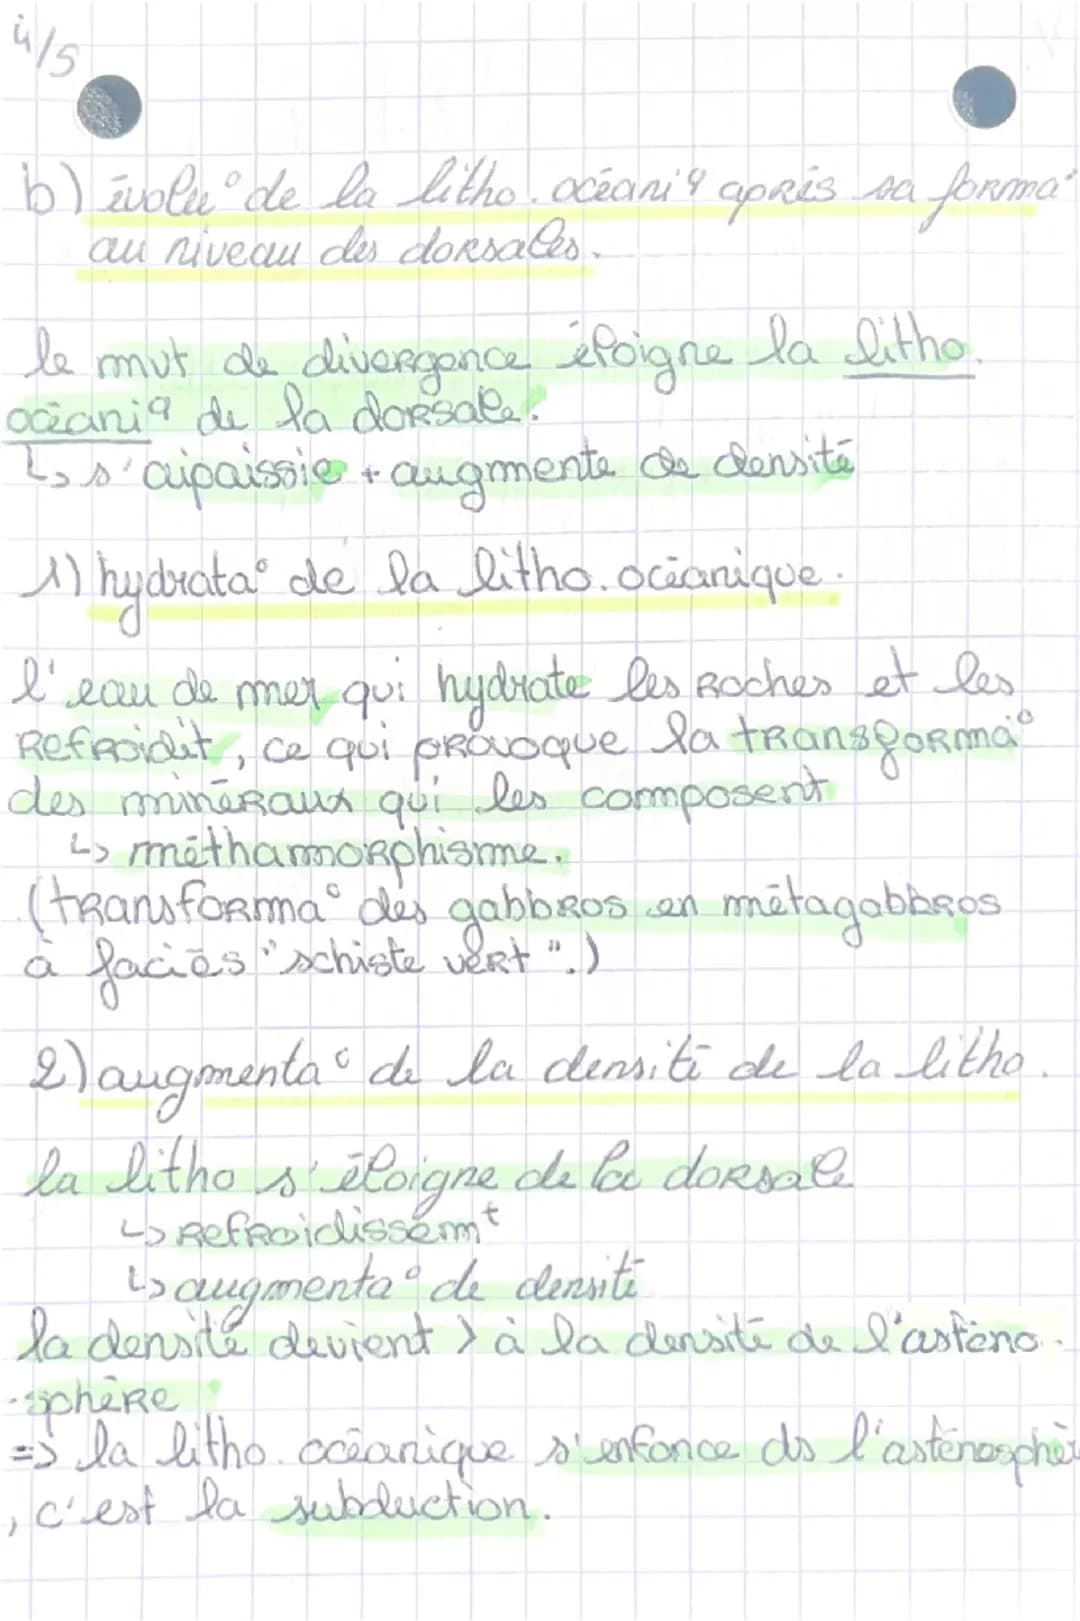 4/5
b) évolu° de la litho. océaniq après sa forma°
au niveau des dorsales.
le mvt de divergence éloigne la litho.
océaniq de la dorsale.
↳ s'aipaissie + augmente de densité
1) hydrata° de la litho. océanique.
l'eau de mer qui hydrate les roches et les
refroidit, ce qui provoque la transforma°
des minéraux qui les composent
↳ méthamorphisme.
(transforma° des gabbros en métagabbros
à faciès "schiste vert".)
2) augmenta° de la densité de la litho.
la litho s'éloigne de la dorsale
↳ refroidissemt
↳ augmenta° de densité
la densité devient > à la densité de l'asténo-
-sphère
=> la litho. océanique s'enfonce ds l'asténosphèr
, c'est la subduction.